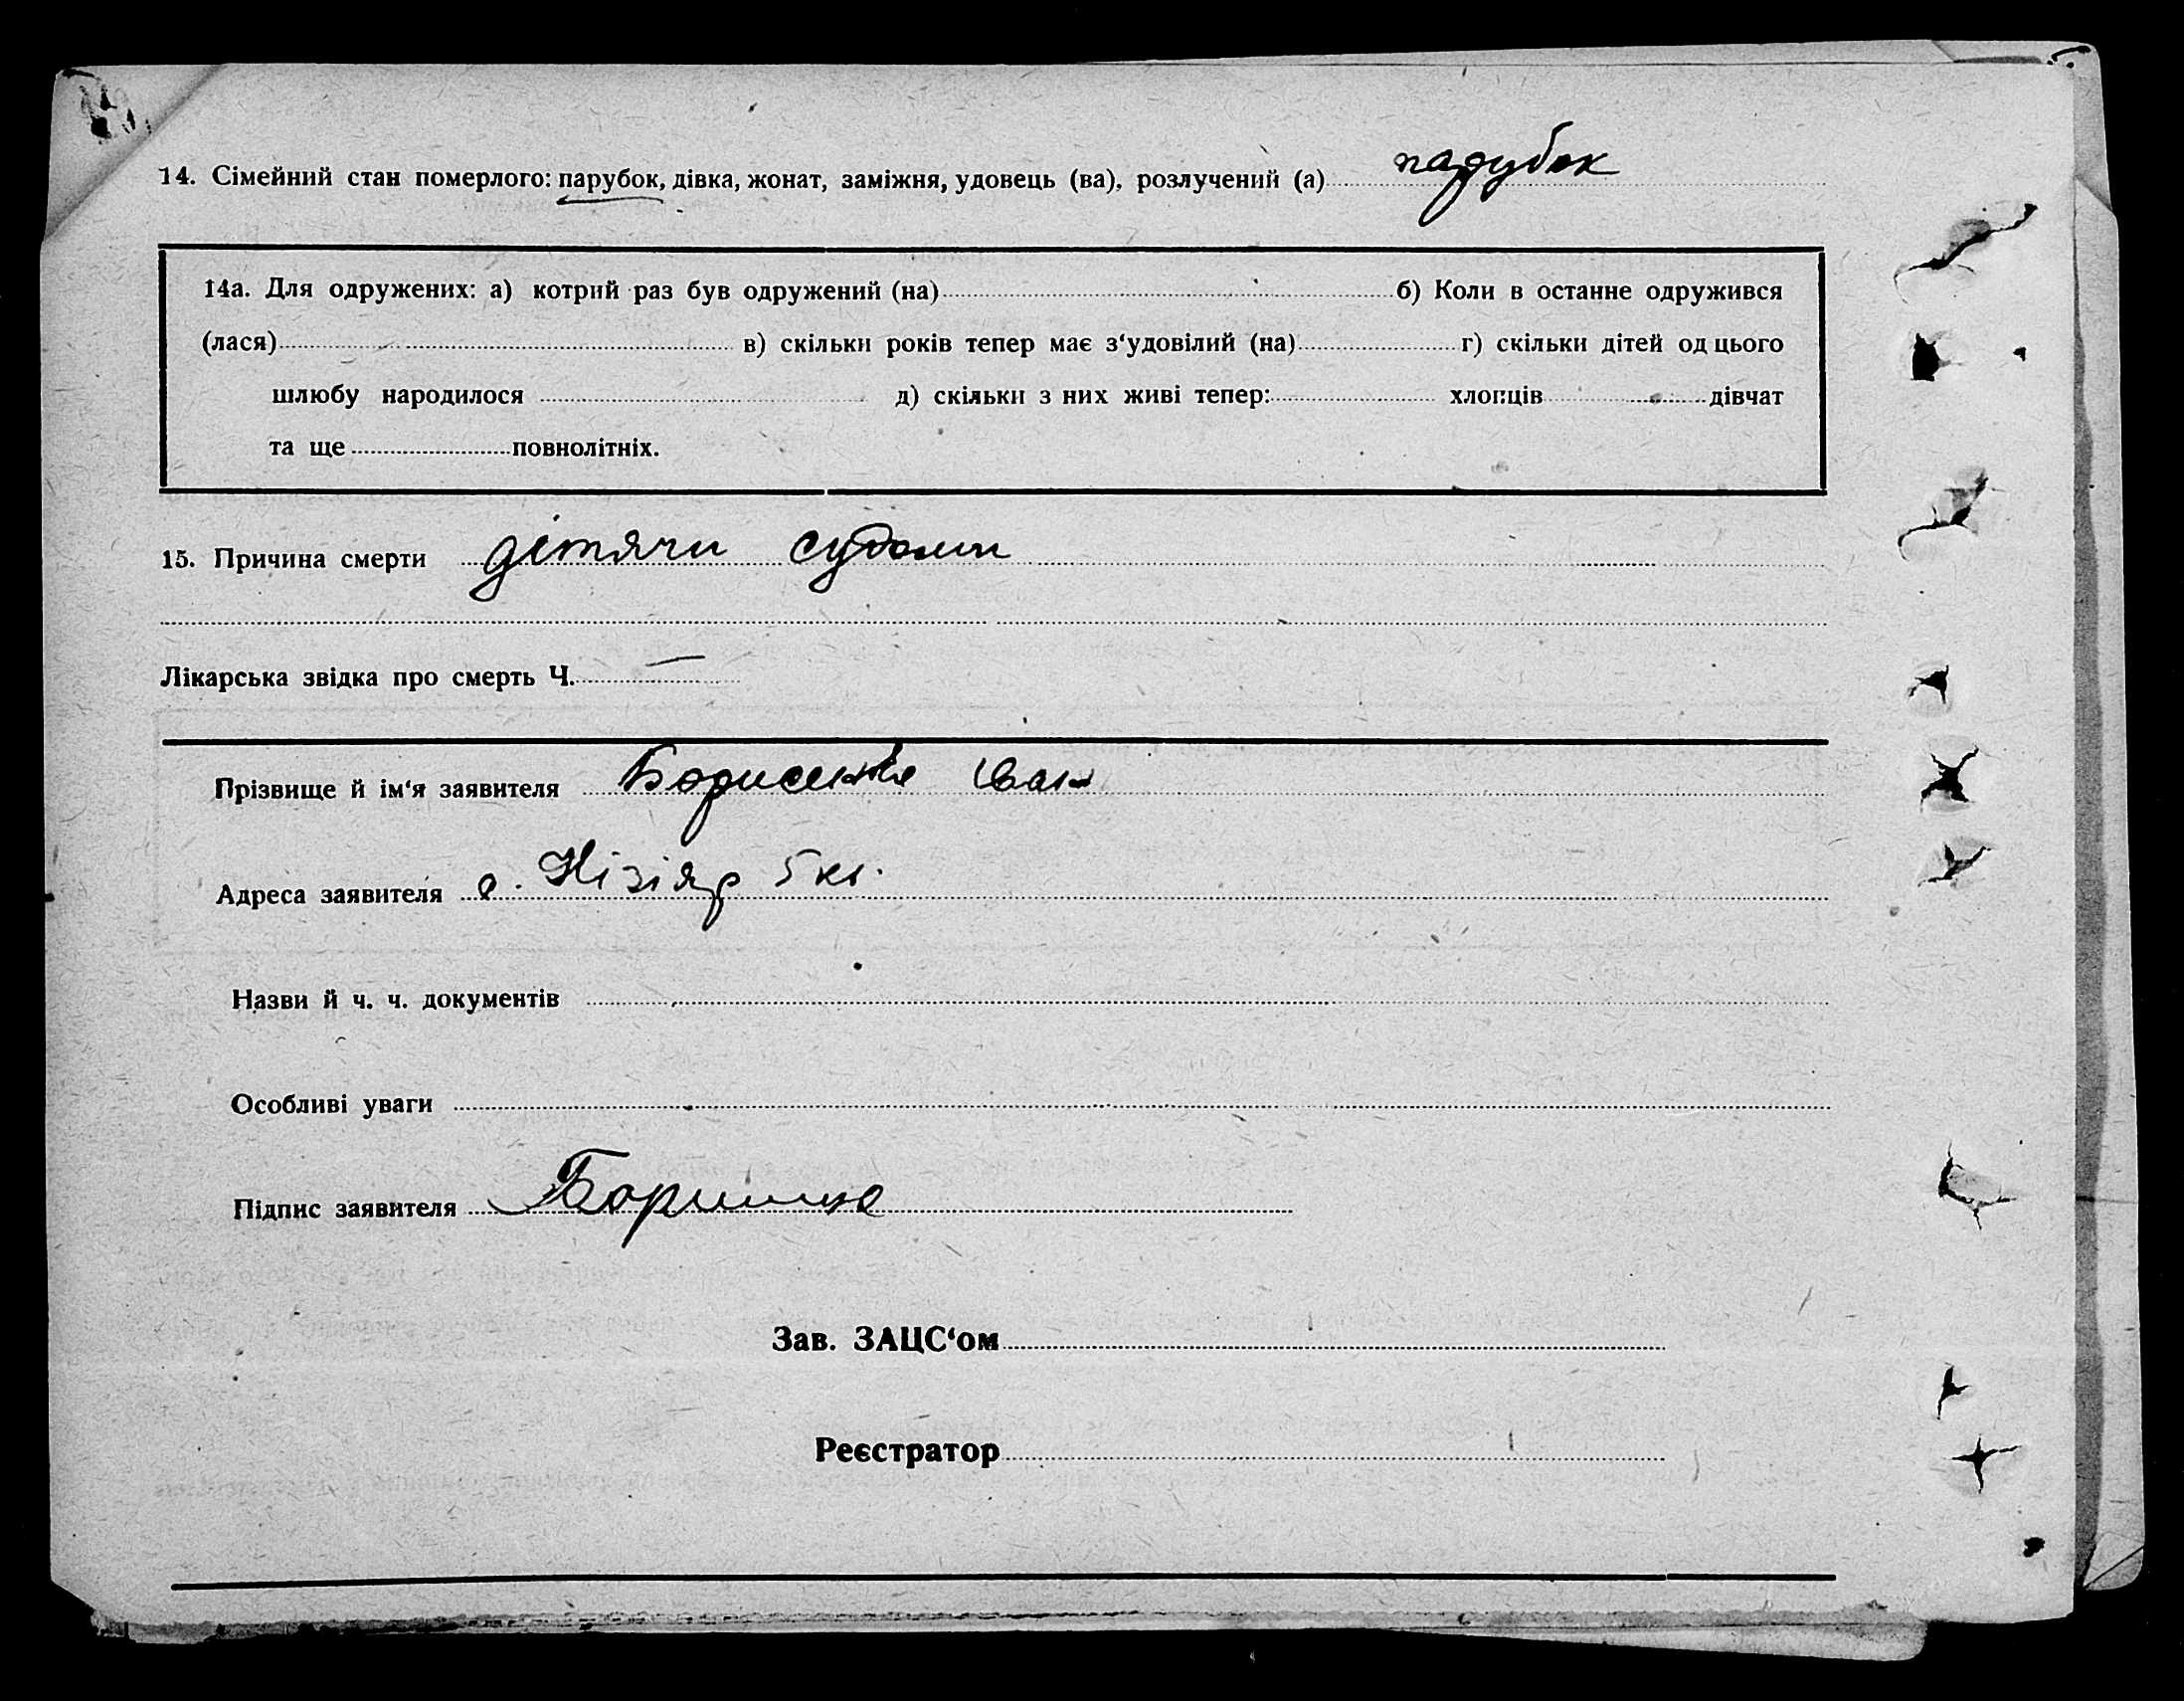 14. Сімейний стан померлого: парубок, дівка, жонат, заміжня, удовець (ва), розлучений (а) парубок
14а. Для одружених: а) котрий раз був одружений (на) б) Коли в останне одружився
(лася) в) скільки років тепер має з‘удовілий (на) г) скільки дітей од цього
шлюбу народилося д) скільки з них живі тепер: хлопців дівчат
та ще повнолітніх.
15. Причина смерти дітячи судоми
Лікарська звідка про смерть Ч. —
Прізвище й ім‘я заявителя Борисенко Іван
Адреса заявителя с. Нізіяр 5 кв.
Назви й ч. ч. документів
Особливі уваги
Підпис заявителя
Зав. ЗАЦС‘ом
Реєстратор